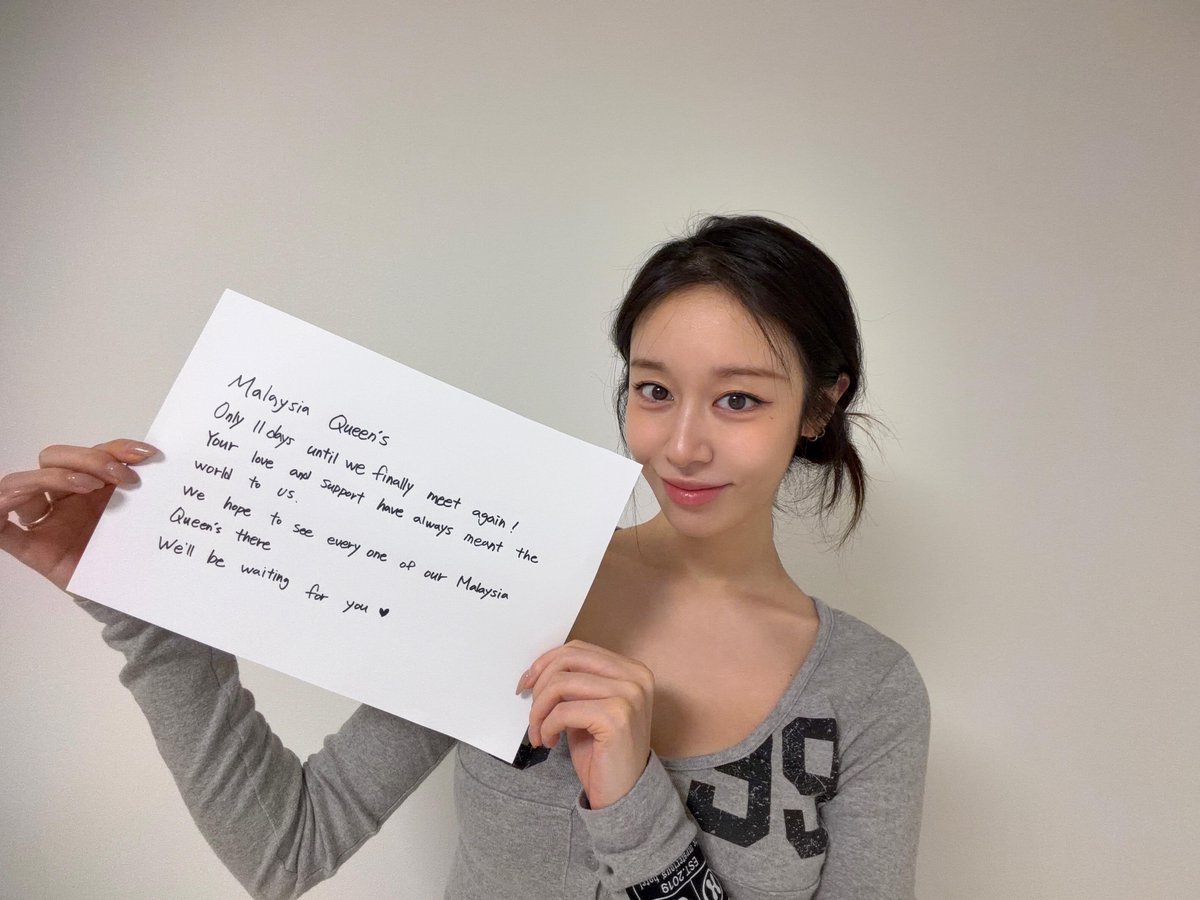 Malaysia Queen's
Only 11 days until we finally meet again!
Your love and support have always meant the
world to us.
We hope to see every one of our Malaysia
Queen's there
We'll be waiting for you ♥
99
EST.2019